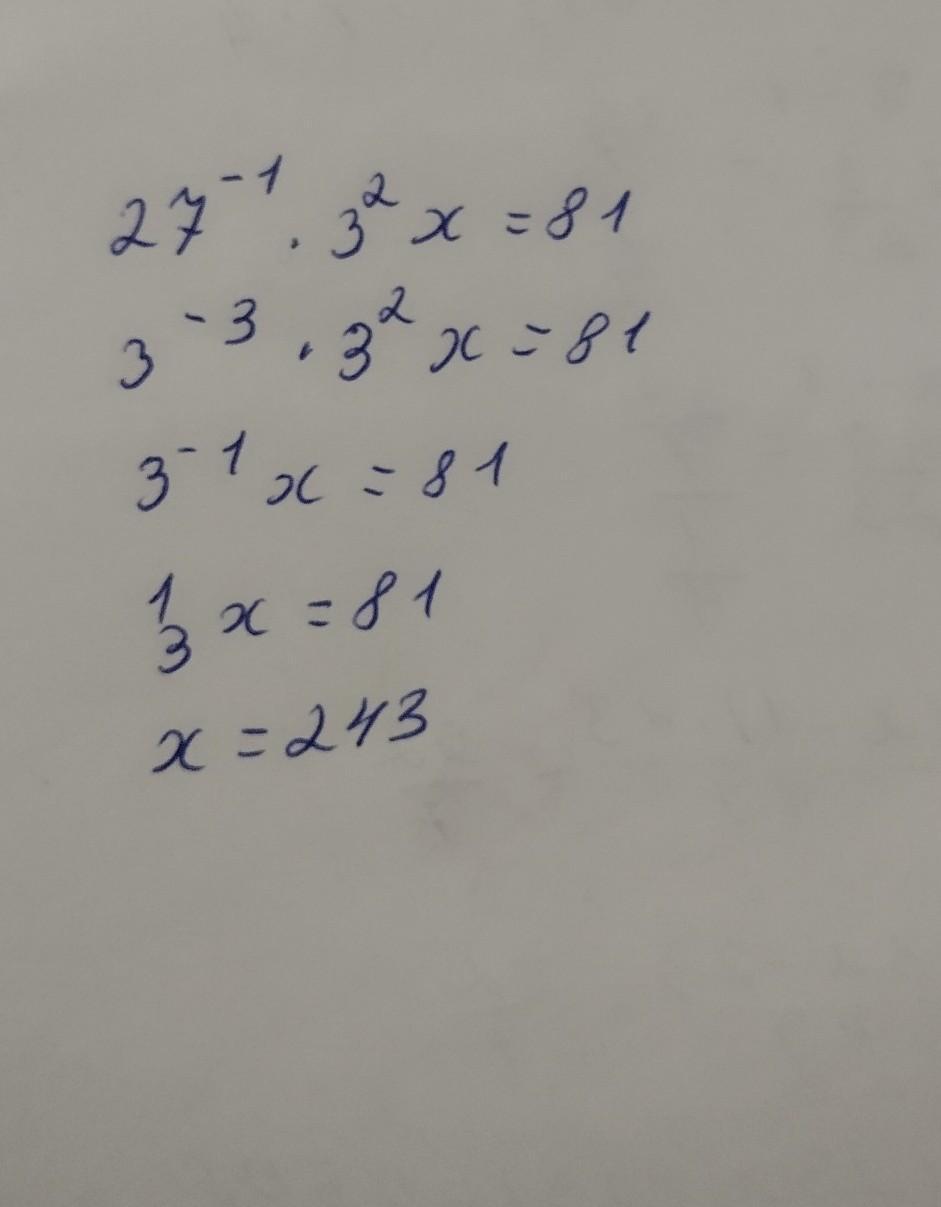 27⁻¹ · 3² x = 81
3⁻³ · 3² x = 81
3⁻¹ x = 81
1/3 x = 81
x = 243